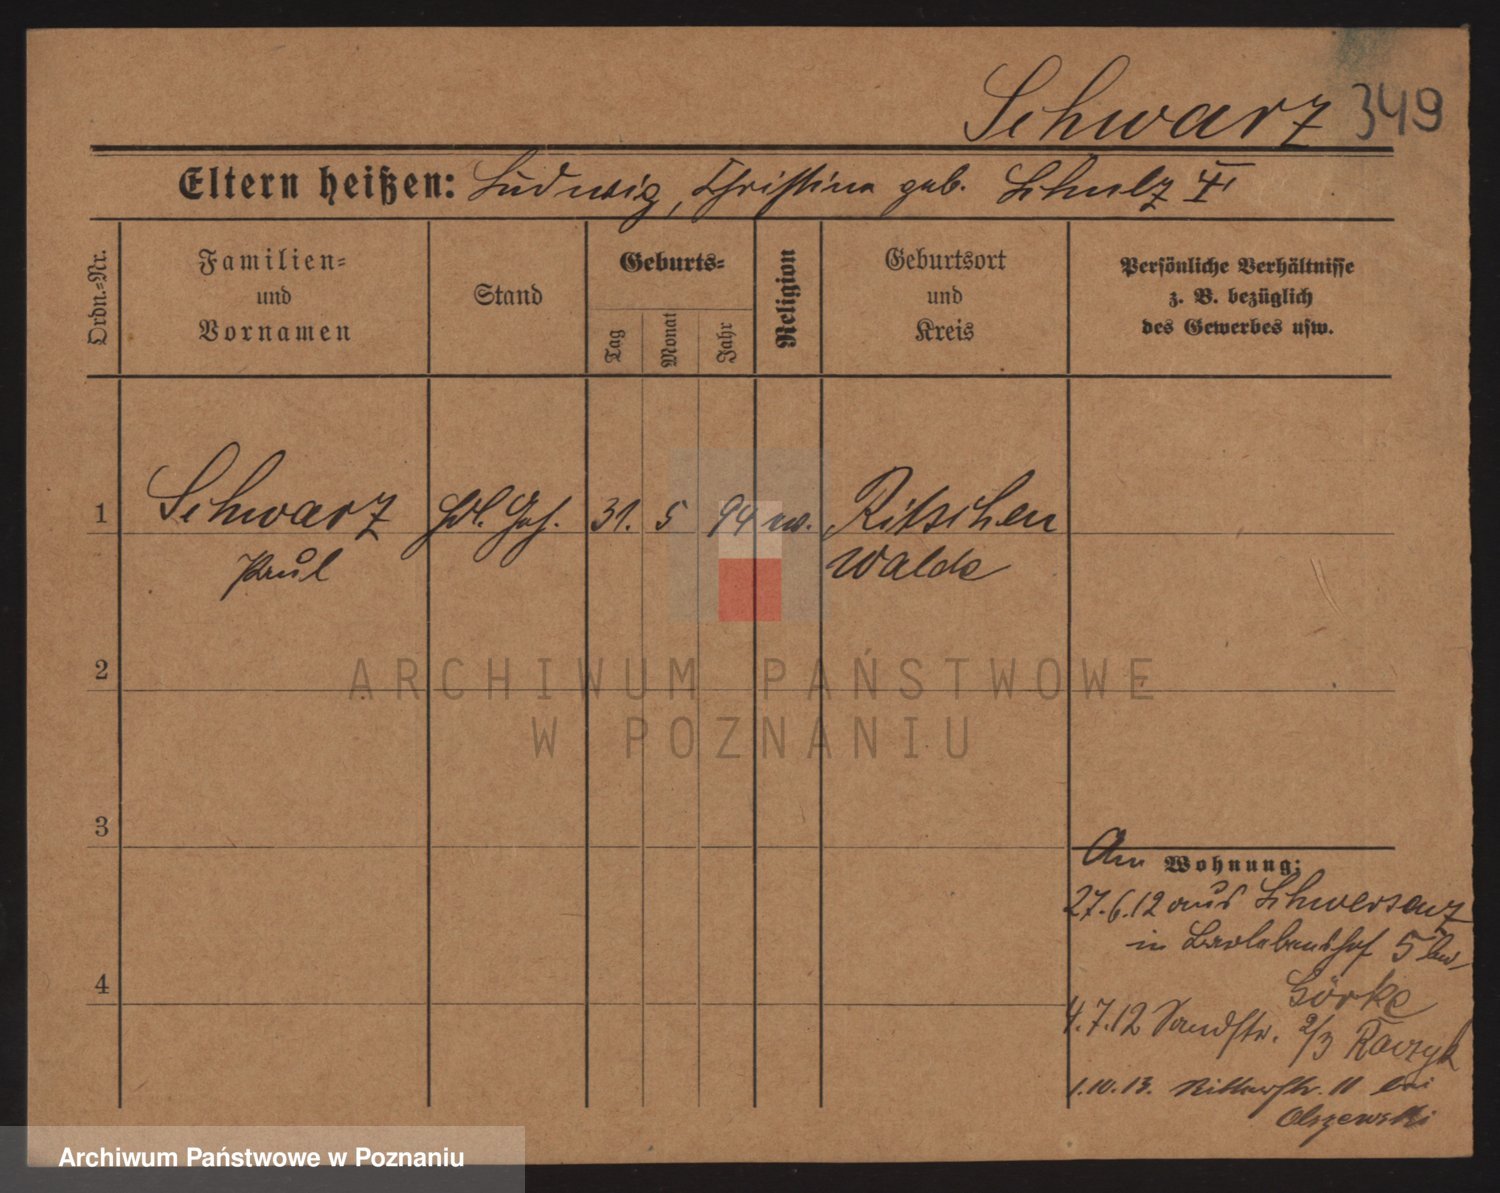 Schwarz 349
Eltern heißen: Ludwig, Christina geb. Schulz
Ordn.-Nr.
Familien-
und
Vornamen
Stand
Geburts-
Tag
Monat
Jahr
Religion
Geburtsort
und
Kreis
Persönliche Verhältnisse
z. B. bezüglich
des Gewerbes usw.
1 Schwarz Hdl. Geh. 31. 5 94 Ritschen
Paul walde
2
ARCHIWUM PAŃSTWOWE
W POZNANIU
3
Am Wohnung:
27.6.12 aus Schwersenz
in 5 bei
Görke
4
4.7.12 Sandstr. 2/3 Raczyk
1.10.13. Ritterstr. 11 bei
Olszewski
Archiwum Państwowe w Poznaniu